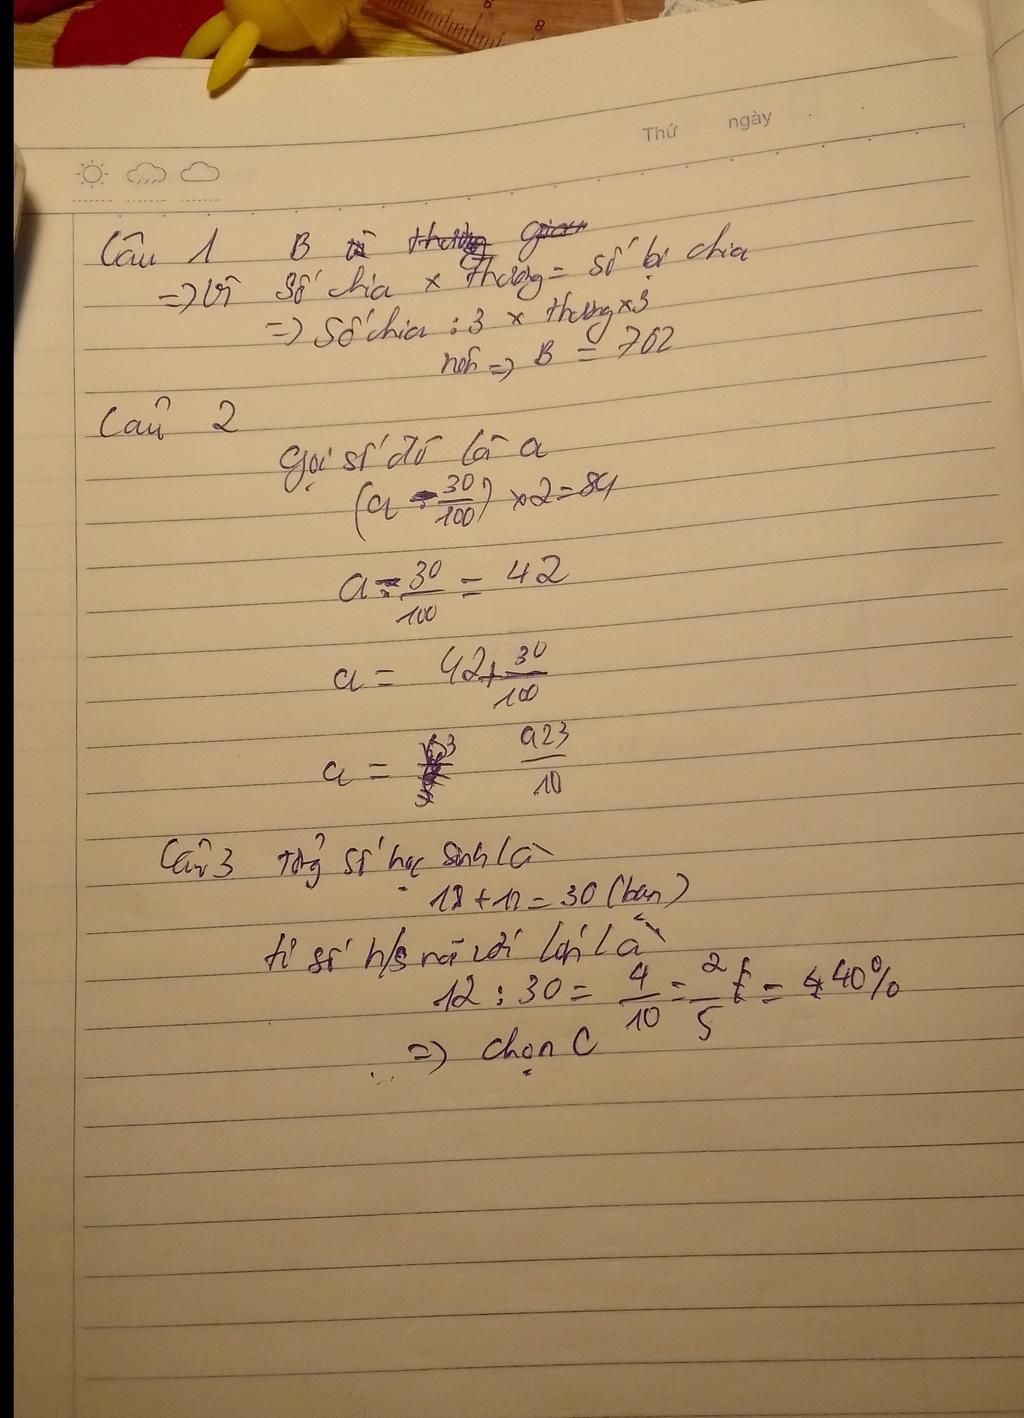 8
Thứ ngày
Câu 1 B
=> Vì Số chia × Thương = số bị chia
=> Số chia : 3 × thương × 3
nên => B = 702
Câu 2
Gọi số đó là a
(a - 30/100) × 2 = 84
a - 30/100 = 42
a = 42 + 30/100
a = 423/10
Câu 3 tổng số học sinh là
18 + 12 = 30 (bạn)
tỉ số h/s nữ với lớp là
12 : 30 = 4/10 = 2/5 = 40%
=> chọn C